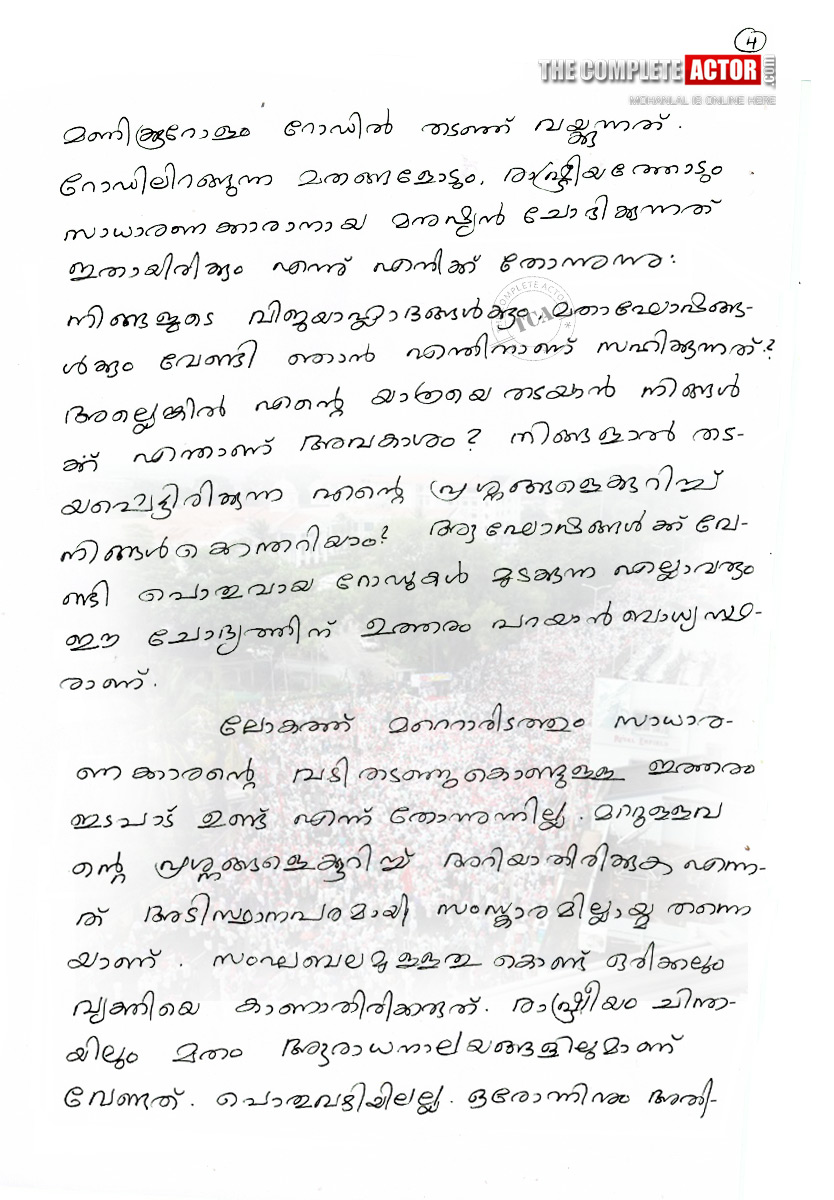 4
THE COMPLETE ACTOR .com
MOHANLAL IS ONLINE HERE
മണിക്കൂറോളം റോഡിൽ തടഞ്ഞ് വയ്ക്കുന്നത്.
റോഡിലിറങ്ങുന്ന മതങ്ങളോടും, രാഷ്ട്രീയത്തോടും.
സാധാരണക്കാരാനായ മനുഷ്യൻ ചോദിക്കുന്നത്
ഇതായിരിക്കും എന്ന് എനിക്ക് തോന്നുന്നു:
COMPLETE ACTOR
TCA
നിങ്ങളുടെ വിജയാഹ്ലാദങ്ങൾക്കും, മതാഘോഷങ്ങ-
ൾക്കും വേണ്ടി ഞാൻ എന്തിനാണ് സഹിക്കുന്നത്?
അല്ലെങ്കിൽ എന്റെ യാത്രയെ തടയാൻ നിങ്ങൾ
ക്ക് എന്താണ് അവകാശം? നിങ്ങളാൽ തട-
യപ്പെട്ടിരിക്കുന്ന എന്റെ പ്രശ്നങ്ങളെക്കുറിച്ച്
നിങ്ങൾക്കെന്തറിയാം? ആഘോഷങ്ങൾക്ക് വേ-
ണ്ടി പൊതുവായ റോഡുകൾ മുടക്കുന്ന എല്ലാവരും
ഈ ചോദ്യത്തിന് ഉത്തരം പറയാൻ ബാധ്യസ്ഥ-
രാണ്.
ലോകത്ത് മറ്റൊരിടത്തും സാധാര-
ണക്കാരന്റെ വഴി തടഞ്ഞുകൊണ്ടുള്ള ഇത്തരം
ഇടപാട് ഉണ്ട് എന്ന് തോന്നുന്നില്ല. മറ്റുള്ളവ
ന്റെ പ്രശ്നങ്ങളെക്കുറിച്ച് അറിയാതിരിക്കുക എന്ന-
ത് അടിസ്ഥാനപരമായി സംസ്കാരമില്ലായ്മ തന്നെ
യാണ്. സംഘബലമുള്ളതു കൊണ്ട് ഒരിക്കലും
വ്യക്തിയെ കാണാതിരിക്കരുത്. രാഷ്ട്രീയം ചിന്ത-
യിലും മതം ആരാധനാലയങ്ങളിലുമാണ്
വേണ്ടത്. പൊതുവഴിയിലല്ല. ഒരോന്നിനും അതി-